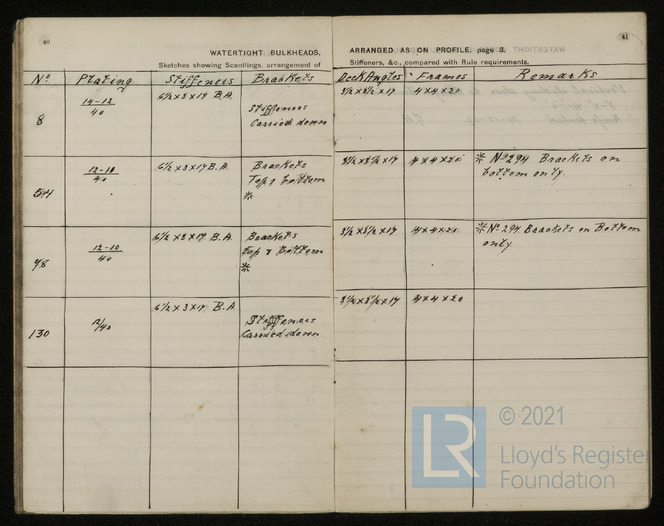 40
41
WATERTIGHT BULKHEADS, ARRANGED AS ON PROFILE, page 3.
Sketches showing Scantlings, arrangement of Stiffeners, &c., compared with Rule requirements.
No Plating Stiffeners Brackets Deck Angles Frames Remarks
8 14-12/40 6½ x 3 x 17 B.A. Stiffeners Carried down 3½ x 3½ x 17 4 x 4 x 20
54 12-10/40 6½ x 3 x 17 B.A. Brackets Top & bottom * 3½ x 3½ x 17 4 x 4 x 20 * No 294 Brackets on bottom only.
98 12-10/40 6½ x 3 x 17 B.A. Brackets top & bottom * 3½ x 3½ x 17 4 x 4 x 20 * No 294 Brackets on Bottom only
130 12/40 6½ x 3 x 17 B.A. Stiffeners Carried down 3½ x 3½ x 17 4 x 4 x 20
© 2021
LR
Lloyd's Register
Foundation